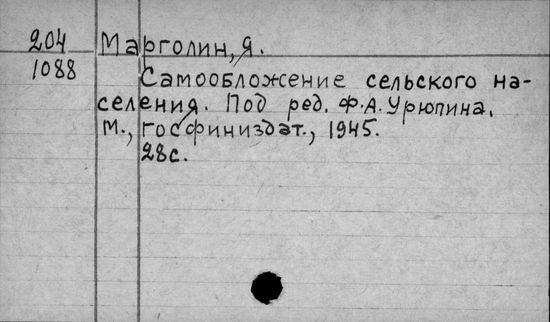 204
1088
Марголин, Я.
Самообложение сельского на-
селения. Под ред. Ф.А. Урюпина.
М., Госфиниздат., 1945.
28с.